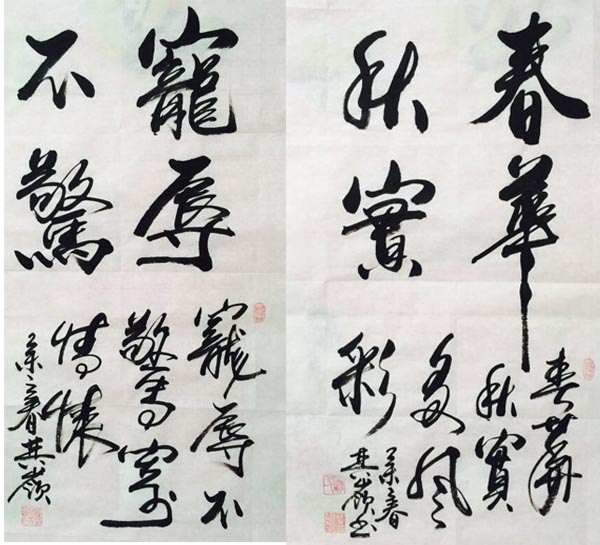 春華
秋實
春華
秋實
多風
彩
春
其嶺書
寵辱
不驚
寵辱不
驚寄
情懷
春其嶺